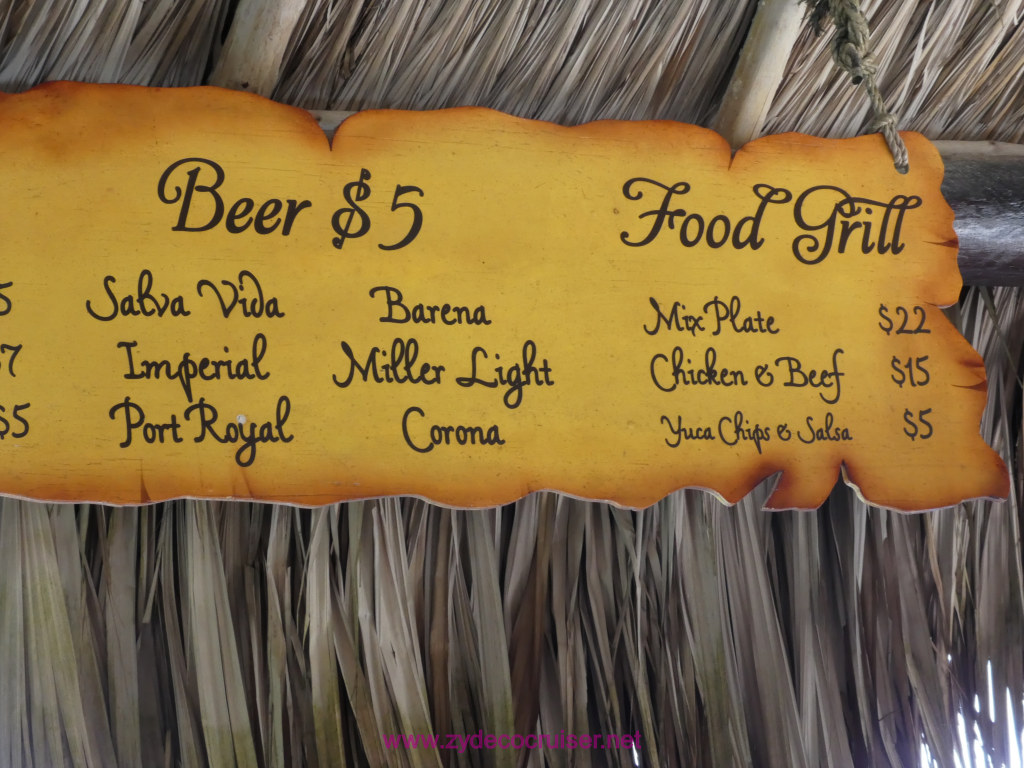 Beer $5
Salva Vida Barena
Imperial Miller Light
Port Royal Corona
Food Grill
Mix Plate $22
Chicken & Beef $15
Yuca Chips & Salsa $5
5
$7
$5
www.zydecocruiser.net